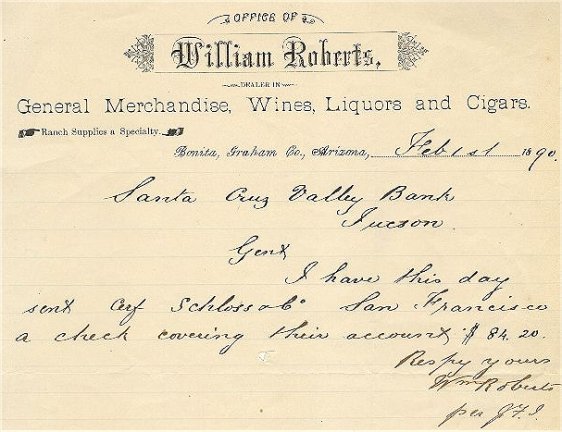 OFFICE OF
William Roberts,
DEALER IN
General Merchandise, Wines, Liquors and Cigars.
Ranch Supplies a Specialty.
Bonita, Graham Co., Arizona, Feb 1st 1890.
Santa Cruz Valley Bank
Tucson.
Gent
I have this day
sent Cerf Schloss & Co San Francisco
a check covering their account $ 84.20.
Respy yours
Wm Roberts
per